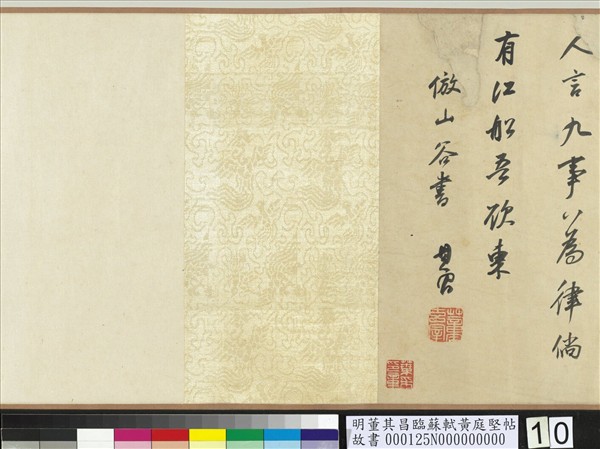 人言九事八為律倘
有江船吾欲東
倣山谷書 其昌
明董其昌臨蘇軾黃庭堅帖
故書 000125N000000000
10